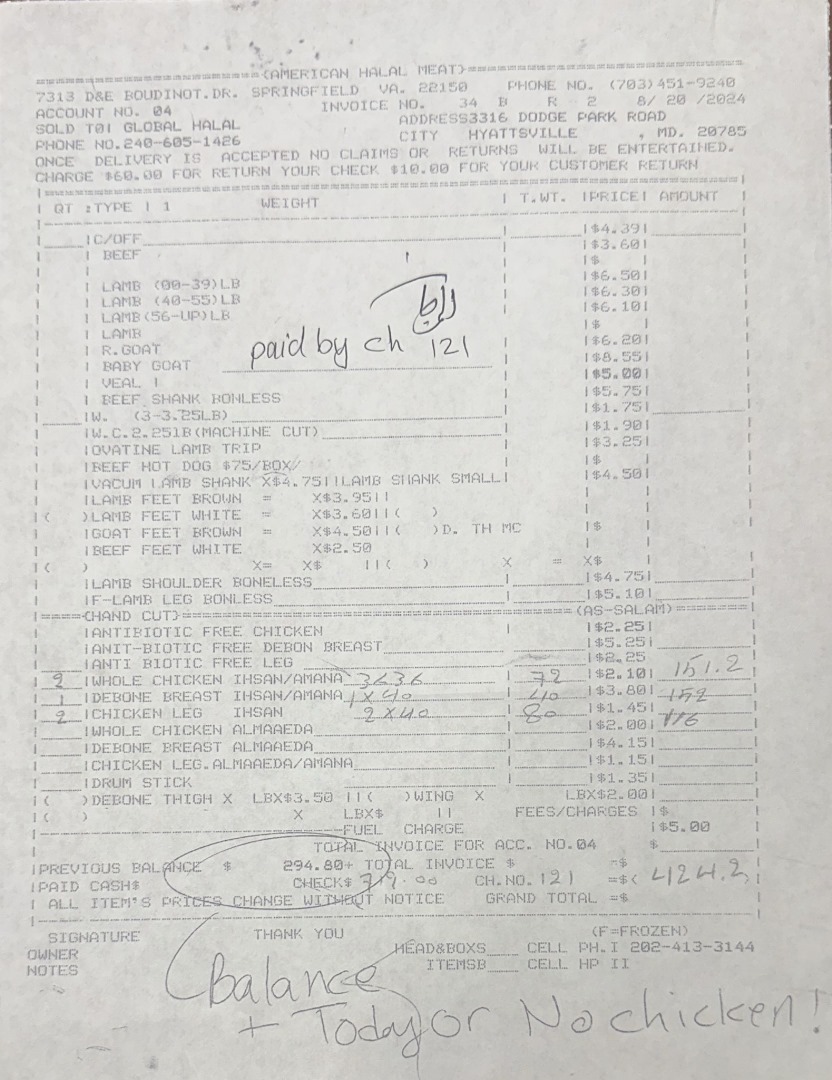 {AMERICAN HALAL MEAT}
7313 D&E BOUDINOT.DR. SPRINGFIELD VA. 22150 PHONE NO. (703)451-9240
ACCOUNT NO. 04 INVOICE NO. 34 B R 2 8/ 20 /2024
SOLD TO: GLOBAL HALAL ADDRESS3316 DODGE PARK ROAD
PHONE NO.240-605-1426 CITY HYATTSVILLE , MD. 20785
ONCE DELIVERY IS ACCEPTED NO CLAIMS OR RETURNS WILL BE ENTERTAIHED.
CHARGE $60.00 FOR RETURN YOUR CHECK $10.00 FOR YOUR CUSTOMER RETURN
| QT :TYPE | 1 WEIGHT | T.WT. |PRICE| AMOUNT
|C/OFF |$4.39|
| BEEF |$3.60|
| |$ |
| LAMB (00-39)LB |$6.50|
| LAMB (40-55)LB |$6.30|
| LAMB(56-UP)LB |$6.10|
| LAMB |$ |
| R.GOAT |$6.20|
| BABY GOAT |$8.55|
| VEAL | |$5.00|
| BEEF SHANK BONLESS |$5.75|
paid by ch 121
|W. (3-3.25LB) |$1.75|
|W.C.2.25lB(MACHINE CUT) |$1.90|
|OVATINE LAMB TRIP |$3.25|
|BEEF HOT DOG $75/BOX/ |$ |
|VACUM LAMB SHANK X$4.75||LAMB SHANK SMALL| |$4.50|
|LAMB FEET BROWN = X$3.95||
|( )LAMB FEET WHITE = X$3.60||( )
|GOAT FEET BROWN = X$4.50||( )D. TH MC |$ |
|BEEF FEET WHITE X$2.50
|( ) X= X$ ||( ) X = X$
|LAMB SHOULDER BONELESS |$4.75|
|F-LAMB LEG BONLESS |$5.10|
=====CHAND CUT}===(AS-SALAM)=====
|ANTIBIOTIC FREE CHICKEN |$2.25|
|ANIT-BIOTIC FREE DEBON BREAST |$5.25|
|ANTI BIOTIC FREE LEG |$2.25
2 |WHOLE CHICKEN IHSAN/AMANA 3636 72 |$2.10| 151.2
1 |DEBONE BREAST IHSAN/AMANA 1X40 40 |$3.80| 152
2 |CHICKEN LEG IHSAN 2X40 80 |$1.45| 116
|WHOLE CHICKEN ALMAAEDA |$2.00|
|DEBONE BREAST ALMAAEDA |$4.15|
|CHICKEN LEG.ALMAAEDA/AMANA |$1.15|
|DRUM STICK |$1.35|
|( )DEBONE THIGH X LBX$3.50 ||( )WING X LBX$2.00|
|( ) X LBX$ || FEES/CHARGES |$
FUEL CHARGE |$5.00
TOTAL INVOICE FOR ACC. NO.04 $
|PREVIOUS BALANCE $ 294.80+ TOTAL INVOICE $ =$
|PAID CASH$ CHECK$ 719.00 CH.NO. 121 =$< 424.2
| ALL ITEM'S PRICES CHANGE WITHOUT NOTICE GRAND TOTAL =$
SIGNATURE THANK YOU (F=FROZEN)
OWNER HEAD&BOXS CELL PH.I 202-413-3144
NOTES ITEMSB CELL HP II
Balance
+ Today or No chicken!